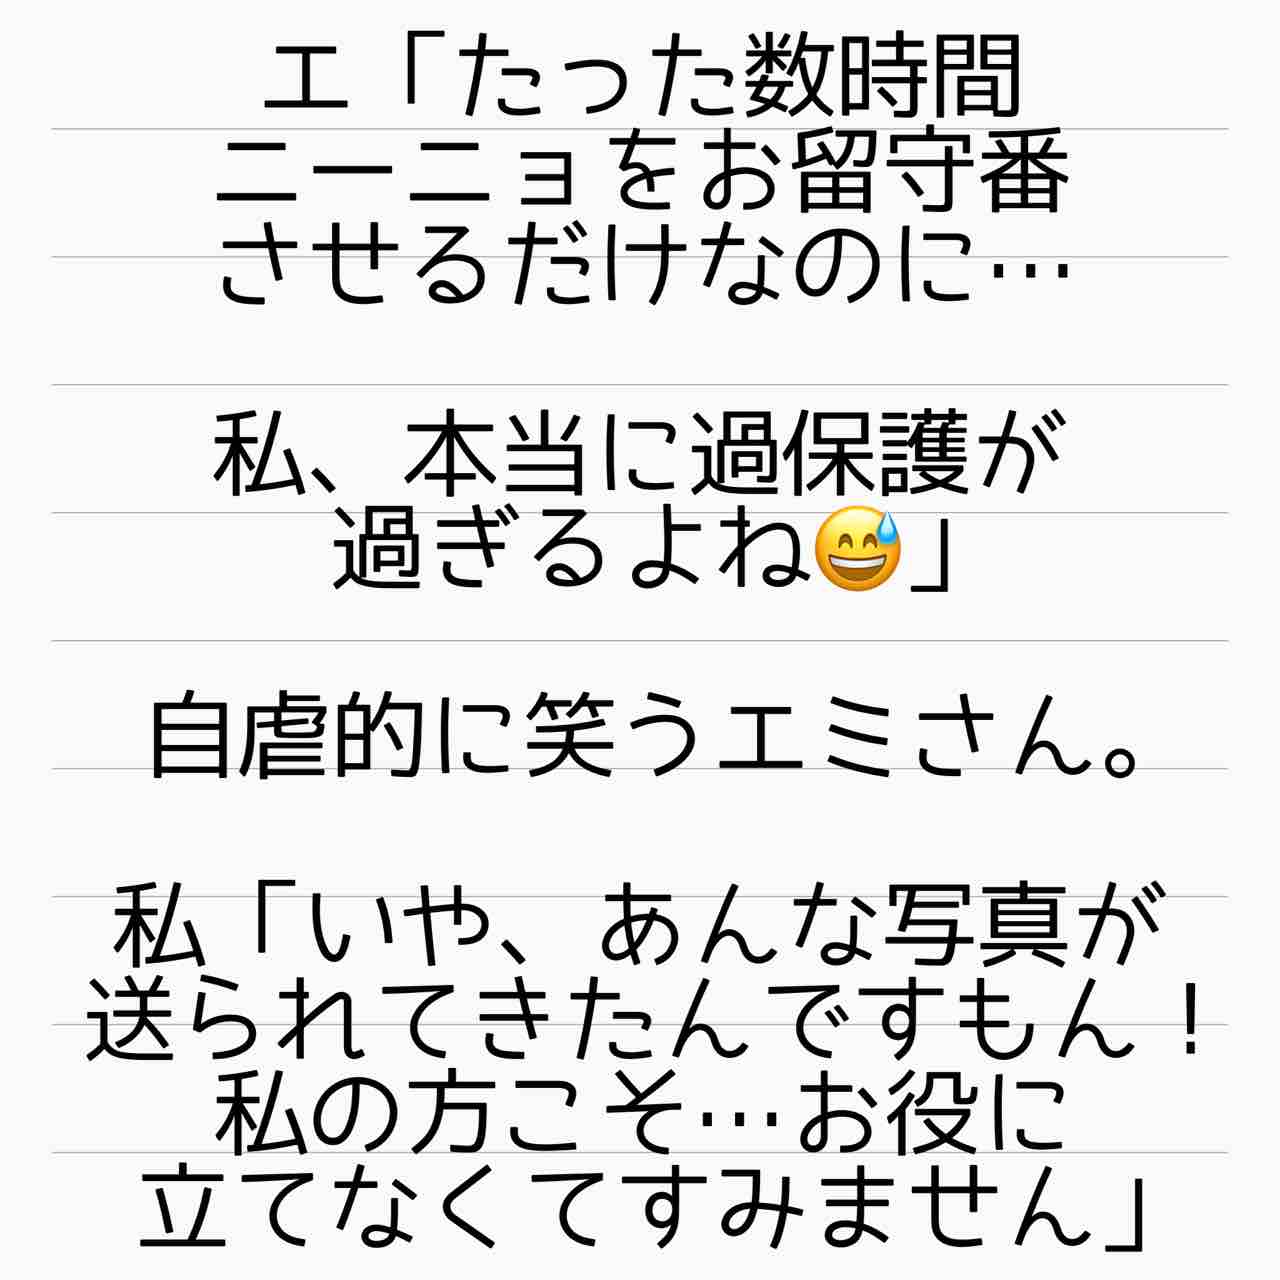 エ「たった数時間
ニーニョをお留守番
させるだけなのに…
私、本当に過保護が
過ぎるよね😅」
自虐的に笑うエミさん。
私「いや、あんな写真が
送られてきたんですもん！
私の方こそ…お役に
立てなくてすみません」